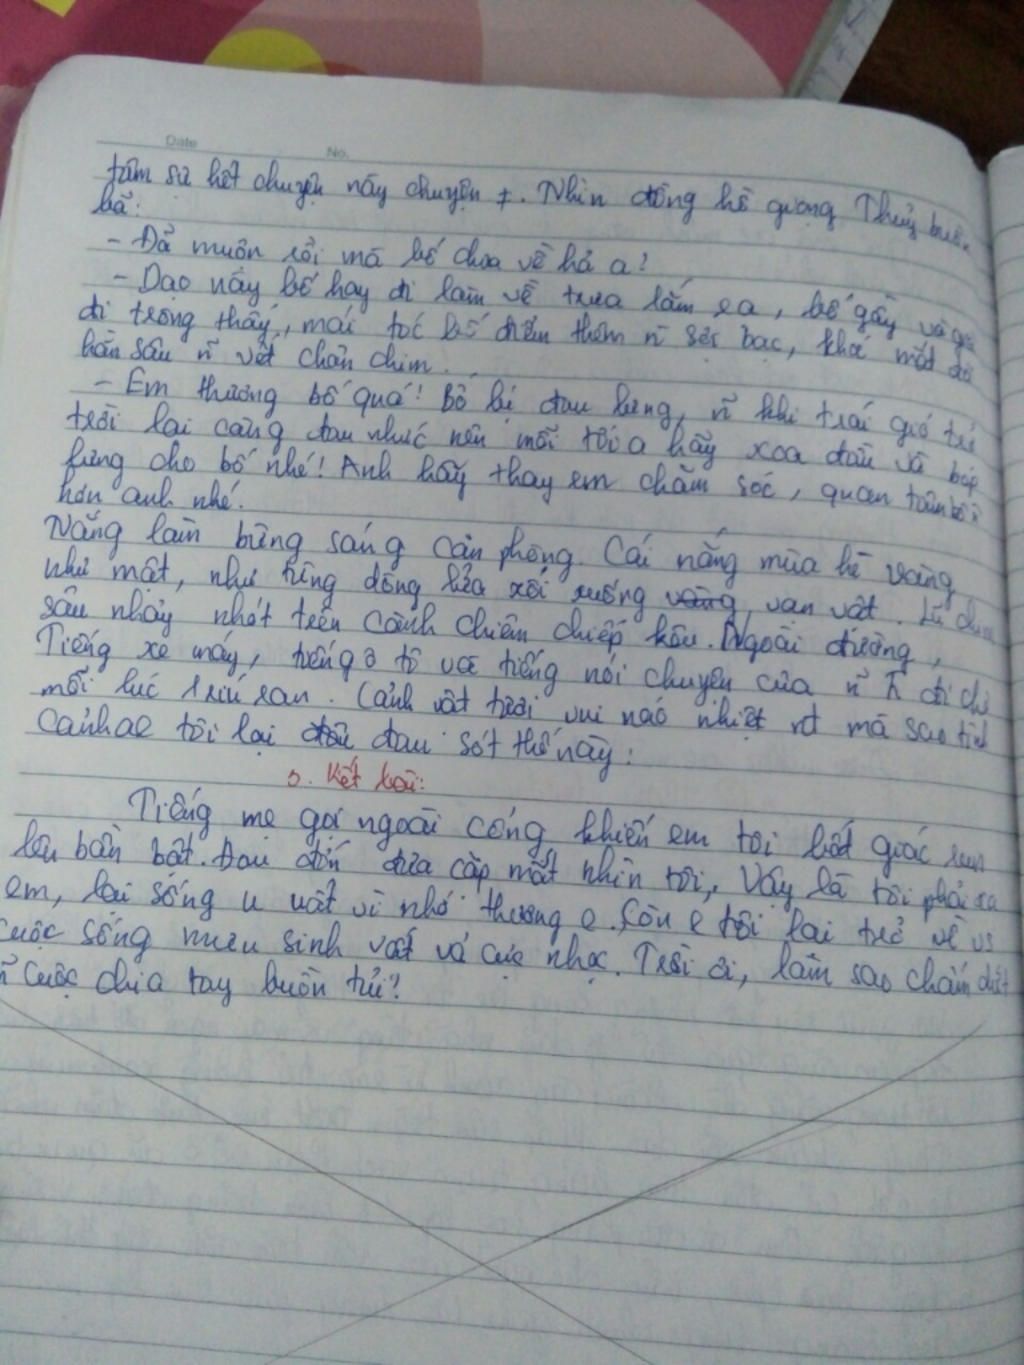 Date No.
tâm sự hết chuyện này chuyện ≠. Nhìn đồng hồ gượng Thuỷ buồn
bã:
- Đã muộn rồi mà bố chưa về hả a?
- Dạo này bố hay đi làm về trưa lắm e a, bố gầy và
đi trông thấy, mái tóc bố điểm thêm n~ sợi bạc, khoé mắt đã
hằn sâu n~ vết chân chim.
- Em thương bố quá! Bố bị đau lưng, n~ khi trái gió trở
trời lại càng đau nhức nên mỗi tối a hãy xoa dầu và bóp
lưng cho bố nhé! Anh hãy thay em chăm sóc, quan tâm bố
hơn anh nhé.
Nắng làm bừng sáng căn phòng. Cái nắng mùa hè vàng
như mật, như từng dòng lửa xối xuống vàng vạn vật. Lũ chim
sâu nhảy nhót trên cành chiêm chiếp kêu. Ngoài đường,
Tiếng xe máy, tiếng ô tô và tiếng nói chuyện của n~ đi chợ
mỗi lúc 1 ríu ran. Cảnh vật tươi vui náo nhiệt mà sao tình
cảnh ae tôi lại đau đau sót thế này!
3. Kết bài:
Tiếng mẹ gọi ngoài cổng khiến em tôi bất giác run
lên bần bật. Đau đớn đưa cặp mắt nhìn tôi, Vậy là tôi phải xa
em, lại sống vì nhớ thương e. Còn e tôi lại trở về vs
cuộc sống mưu sinh vất vả cực nhọc. Trời ơi, làm sao chấm dứt
n~ cuộc chia tay buồn tủi?